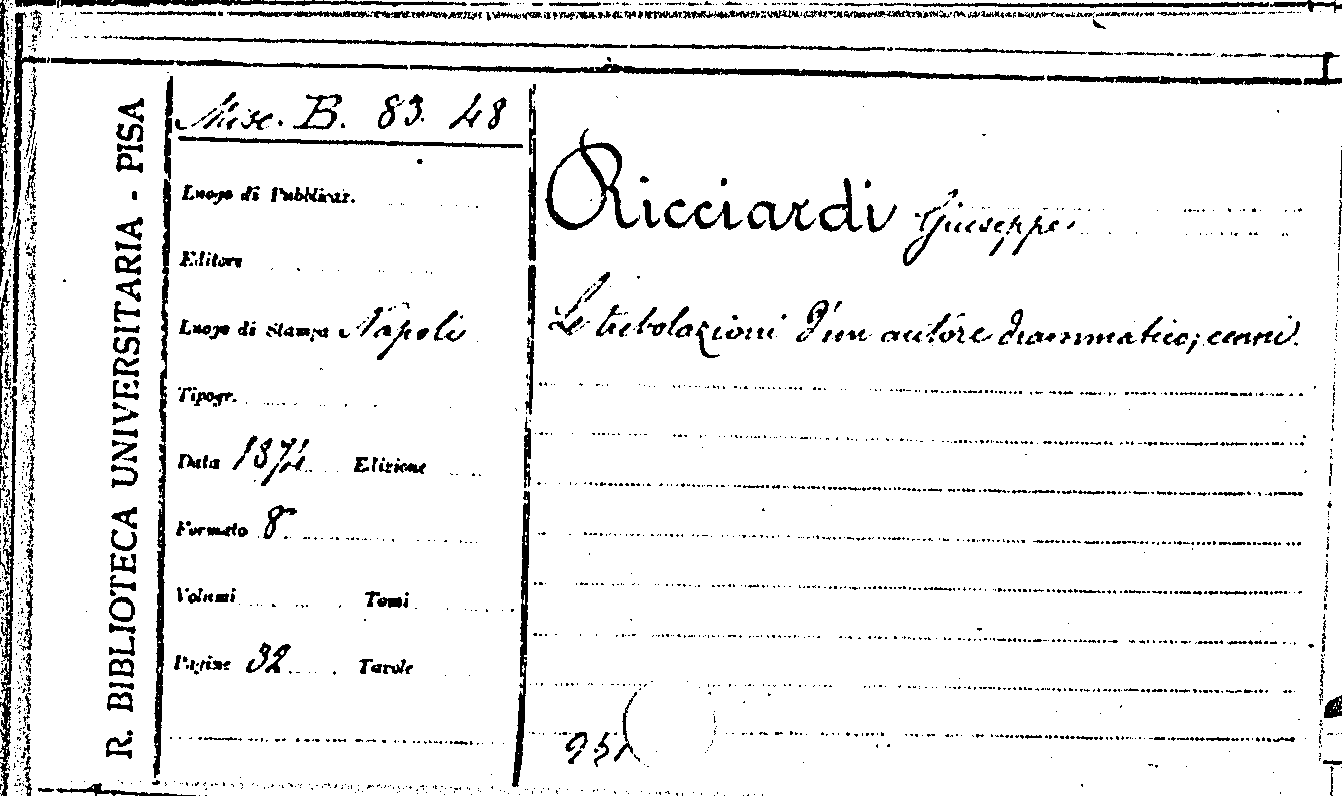 R. BIBLIOTECA UNIVERSITARIA - PISA
Misc. B. 83. 48
Luogo di Pubblicaz.
Editore
Luogo di Stampa Napoli
Tipogr.
Data 1874 Edizione
Formato 8°
Volumi Tomi
Pagine 32 Tavole
Ricciardi Giuseppe
Le tribolazioni d'un autore drammatico; cenni.